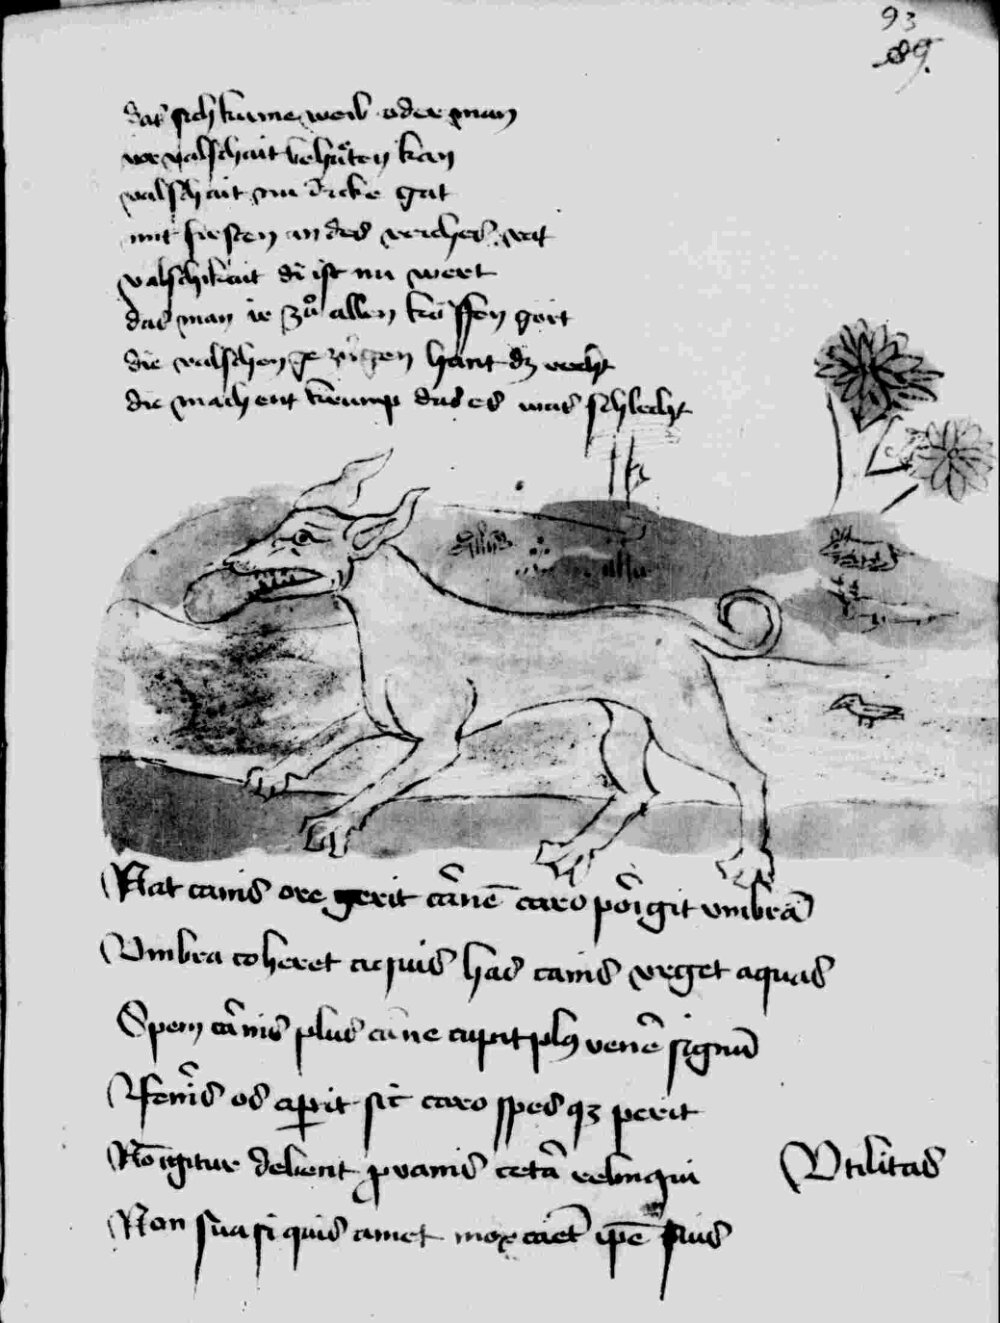 93
89.
das sich kume weib oder man
vor valschait behuͤten kan
valschait nu dicke gat
mit fursten an des riches rat
valschikait di ist nu wert
das man ir zuͦ allen koͮffen gert
die valschen ge zúgen hant dz recht
die machent krump das es was schlecht
Nat canis ore gerit carnē caro porigit vmbrā
Vmbra coheret aquis has canis vrget aquas
Spem carnis plus carne cupit plus venē signū
Fenoris os aperit sic caro spes qz perit
Nō igitur debent p vanis certa relinqui Vtilitas
Non sua si quis amet mox caret ipē suis